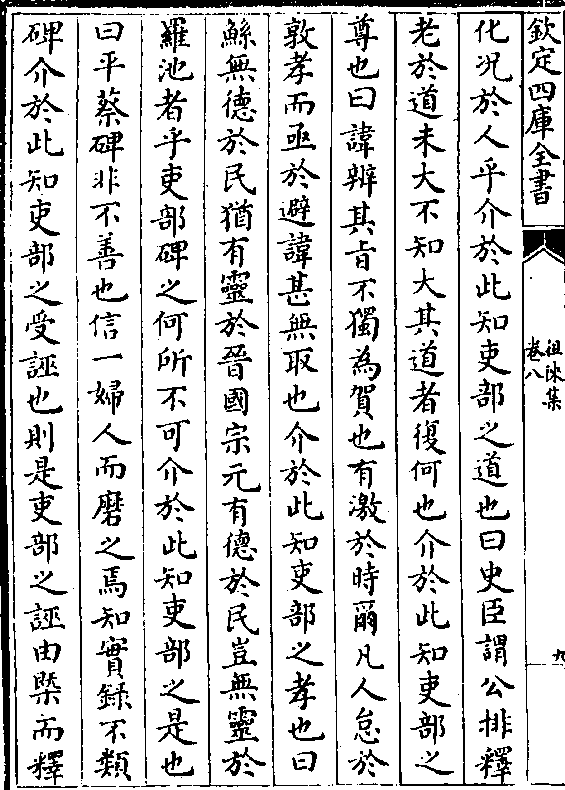 欽定四庫全書
祖徠集
卷八
九
化况於人乎介於此知吏部之道也曰史臣謂公排釋
老於道未大不知大其道者復何也介於此知吏部之
尊也曰諱辨其旨不獨為賀也有激於時爾凡人怠於
敦孝而亟於避諱甚無取也介於此知吏部之孝也曰
鯀無德於民猶有靈於晉國宗元有德於民豈無靈於
羅池者乎吏部碑之何所不可介於此知吏部之是也
曰平蔡碑非不善也信一婦人而磨之焉知實録不類
碑介於此知吏部之受誣也則是吏部之誣由槩而釋